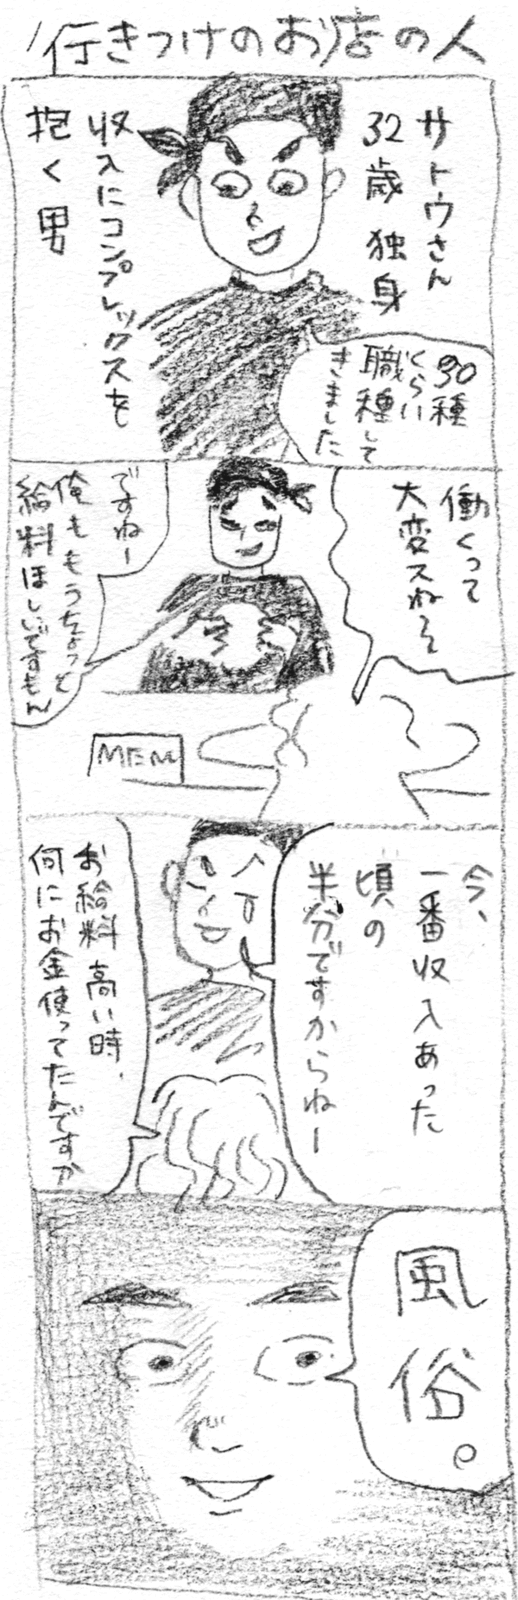 行きつけのお店の人
サトウさん
32歳 独身
収入にコンプレックスを
抱く男
30種
くらい
職種して
きました
働くって
大変スねぇ
ですねー
俺ももうちょっと
給料ほしいですもん
MENU
今、
一番収入あった
頃の
半分ですからねー
お給料高い時、
何にお金使ってたんですか
風
俗。